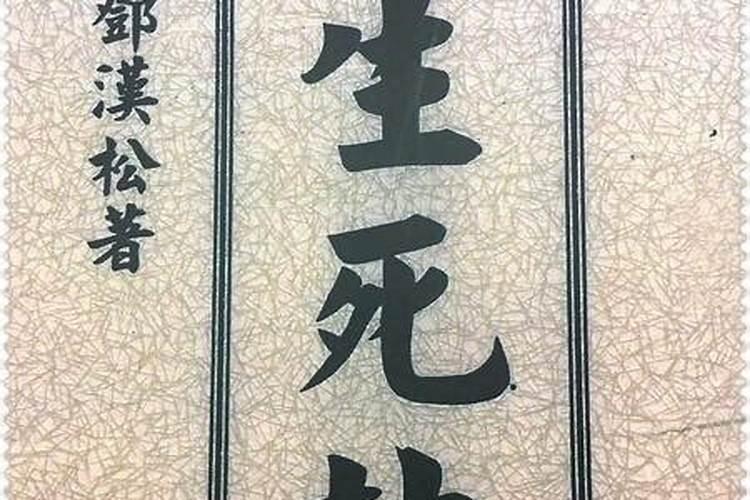 生死
鄧漢松著